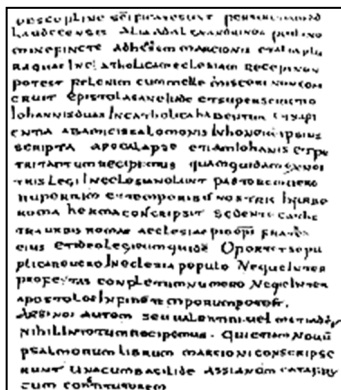 descepline scificate sunt fertur etiam ad
Laudecenses alia ad alexandrinos pauli no
mine fincte ad heresem marcionis et alia plu
ra quae In catholicam eclesiam recepi non
potest fel enim cum melle misceri non con
cruit epistola sane iude et superscrictio
Iohannis duas In catholica habentur et sapi
entia ab amicis salomonis In honore ipsius
scripta apocalapse etiam Iohanis et pe
tri tantum recipimus quam quidam ex nos
tris legi In eclesia nolunt pastorem uero
nuperrim et temporibus nostris In urbe
roma herma conscripsit sedente cathe
tra urbis romae aeclesiae pio eps fratre
eius et ideo legi eum quide Oportet se pu
plicare uero In eclesia populo Neque Inter
profetas conpletum numero Neque Inter
apostolos In fine temporum potest.
Arsinoi autem seu ualentini. uel mitiadis
nihil In totum recipemus. Qui etiam Nouu
psalmorum librum marcioni conscripse
runt una cum basilide assianom catafry
cum constitutorem